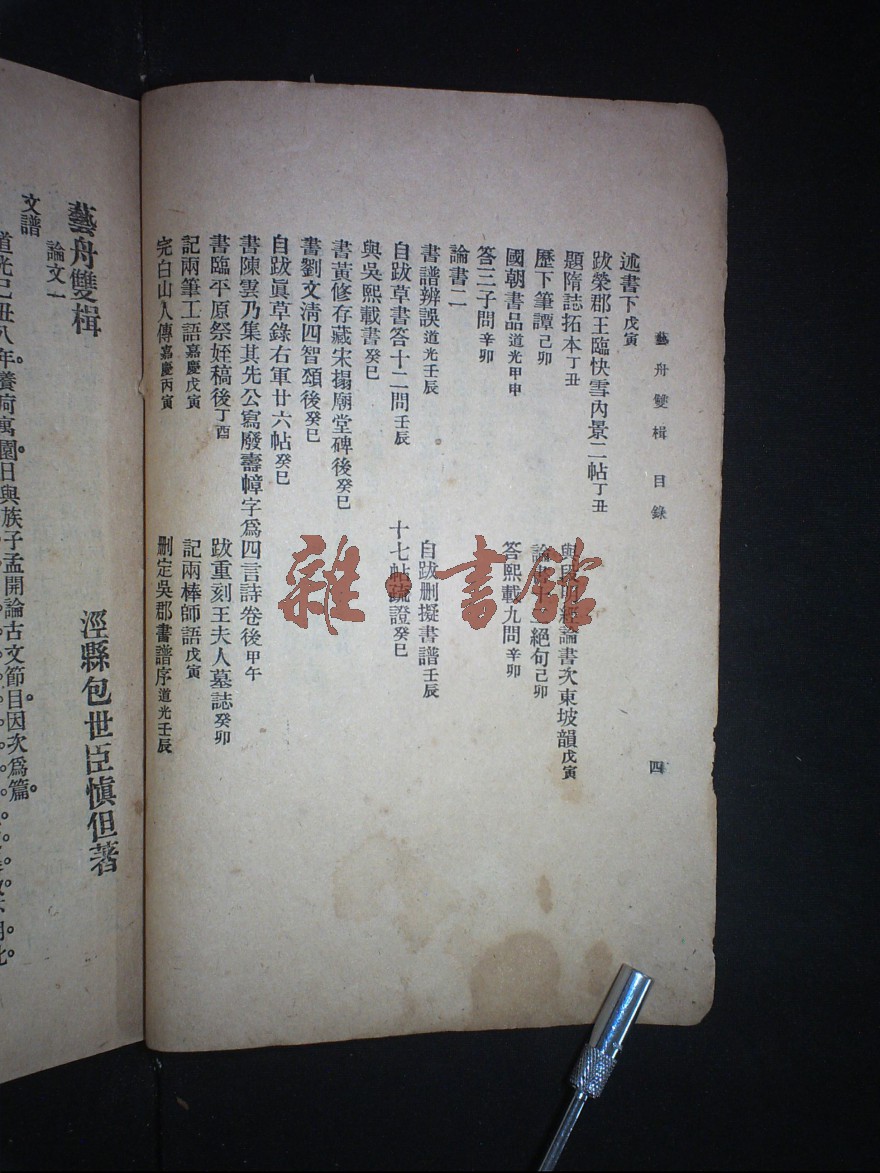 藝舟雙楫 目錄 四
述書下戊寅
跋榮郡王臨快雪內景二帖丁丑
題隋誌拓本丁丑 與 論書次東坡韻戊寅
歷下筆譚己卯 論書十二絕句己卯
國朝書品道光甲申 答熙載九問辛卯
答三子問辛卯
論書二
書譜辨誤道光壬辰 自跋删擬書譜壬辰
自跋草書答十二問壬辰 十七帖疏證癸巳
與吳熙載書癸巳
書黃修存藏宋搨廟堂碑後癸巳
書劉文清四智頌後癸巳
自跋眞草錄右軍廿六帖癸巳
書陳雲乃集其先公寫廢壽幛字爲四言詩卷後甲午
書臨平原祭姪稿後丁酉 跋重刻王夫人墓誌癸卯
記兩筆工語嘉慶戊寅 記兩棒師語戊寅
完白山人傳嘉慶丙寅 删定吳郡書譜序道光壬辰
藝舟雙楫
涇縣包世臣愼伯著
論文一
文譜
道光己丑八年。養疴寓園。日與族子孟開論古文節目。因次爲篇。
雜·書館